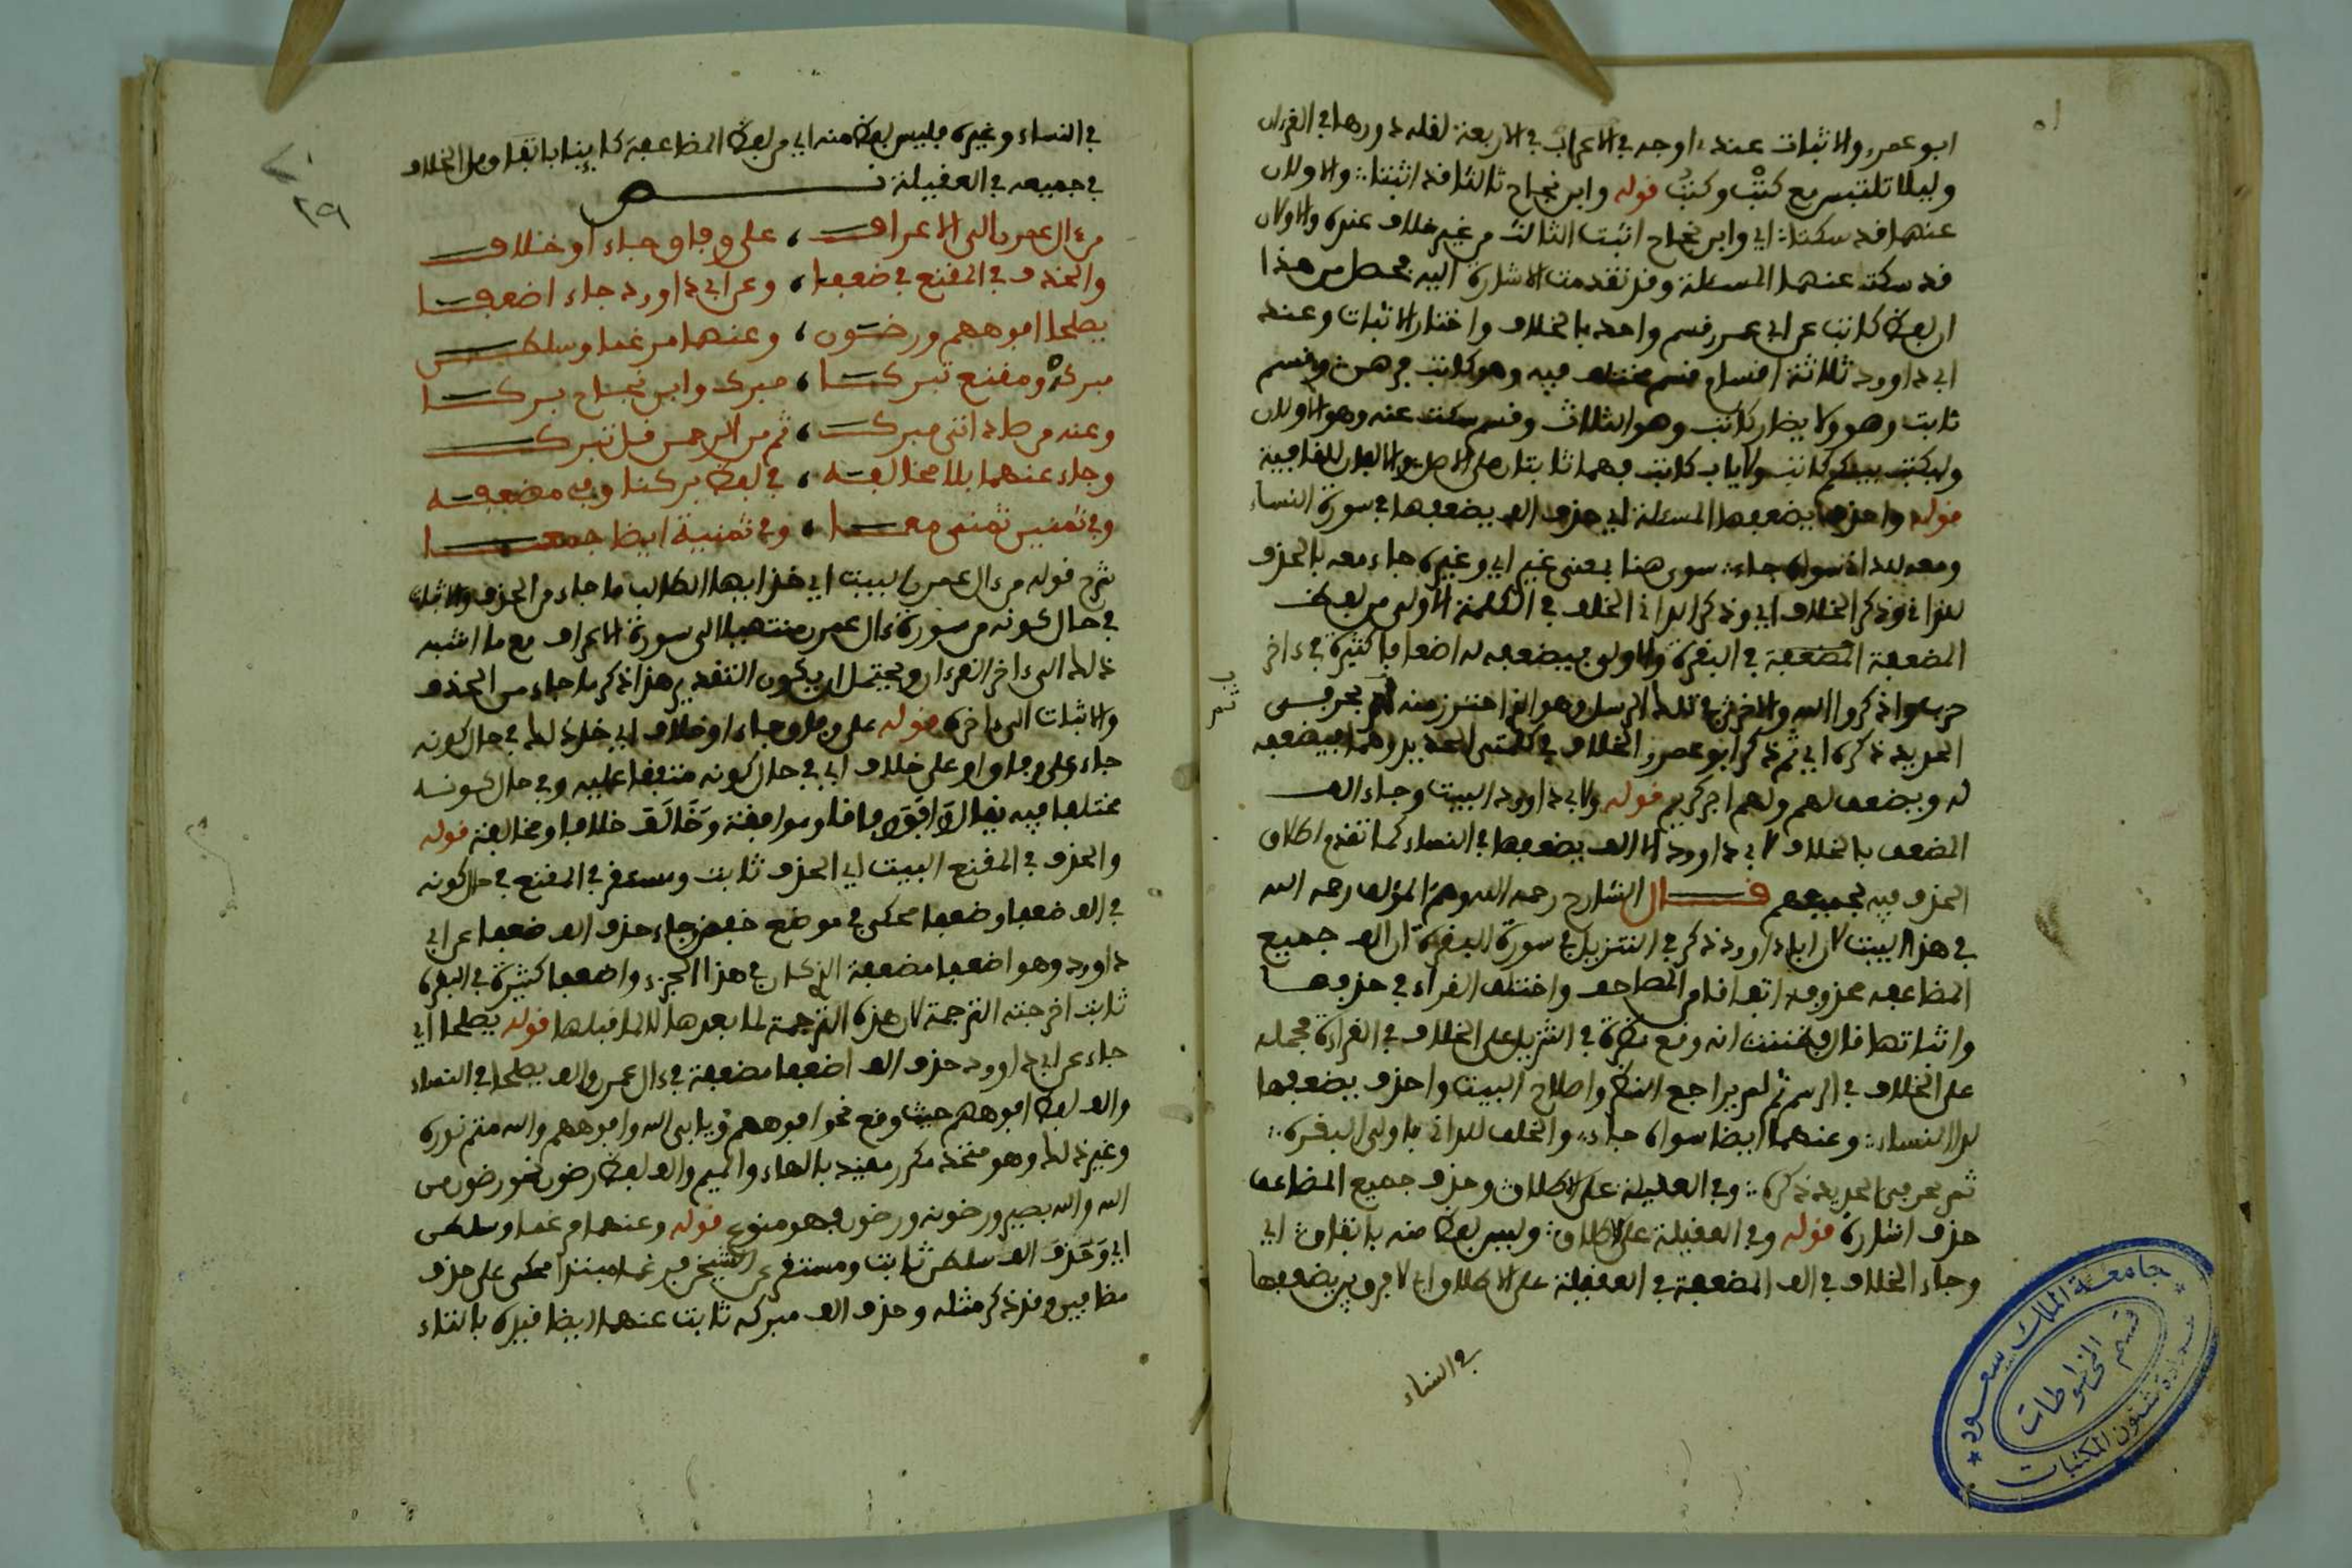 ابو عمرو والاثبات عنده اوجه في الاعراب في الاربعة لقلة دورها في القرءان
وليلا تلتبس مع كنت وكنت قوله وابن نجاح ثالثا قد اثبتا والاولان
عنهما قد سكتا اي وابن نجاح اثبت الثالث من غير خلاف عنده والاولان
قد سكت عنهما المسئلة وقد تقدمت الاشارة اليه فحصل من هذا
ان بعض كاتب عن ابي عمرو قسم واحد بالخلاف واختار الاثبات وعند
ابي داوود ثلاثة اقسام قسم مختلف فيه وهو كاتب فرهن وقسم
ثابت وهو ولا يضار كاتب وهو الثالث وقسم سكت عنه وهو الاولان
وليكتب بينكم كاتب ولا ياب كاتب فهما ثابتان على الاصل والالف للقافية
قوله واحذف يضعفها المسئلة اي حذف الف يضعفها في سورة النساء
ومعه لداني سواه جاء سوى هنا بمعنى غير اي وغيره جاء معه بالحذف
للداني وذكر الخلاف اي وذكر الداني الخلف في الكلمة الاولى من بعض
المضعفة المضعفة في البقرة والاولى فيضعفه له اضعافا كثيرة في ءاخر
حزب واذكروا الله والاخرى في تلك الرسل وهو الذي احترز منه ثم بحرفي
الحديد ذكره اي ثم ذكر ابو عمرو الخلاف في كلمتي الحديد وهما فيضعفه
له ويضعف لهم ولهم اجر كريم قوله ولابي داوود البيت وجاء الف
المضعف بالخلاف لابي داوود الا الف يضعفها في النساء كما تقدم اطلاق
الحذف فيه لجميعهم قـــال الشارح رحمه الله وهم المؤلف رحمه الله
في هذا البيت لان ابا داوود ذكر في التنزيل في سورة البقرة ان الف جميع
المضاعفة محذوفة اتفاقا من المصاحف واختلف القراء في حذفها
واثباتها قال فظننت انه وقع نظره في التنزيل على الخلاف في القراءة فحمله
على الخلاف في الرسم ثم لم يراجع النظر واصلاح البيت واحذف يضعفها
لدا النساء وعنهما ايضا سواه جاء والخلف للداني باولى البقرة
ثم بحرفي الحديد ذكره وفي العقيلة على الاطلاق وحذف جميع المضاعف
حذف اشارة قوله وفي العقيلة على الاطلاق وليس بعض منه باتفاق اي
وجاء الخلاف في الف المضعفة في العقيلة على الاطلاق اي لا فرق بين يضعفها
في النساء
في النساء وغيره فليس بعض منه اي من بعض المضاعفة كاينا باتفاق وبل الخلاف
في جميعه في العقيلة نـــــص
من ءال عمران الى الاعراف، على وفاق جاء او خلاف
والحذف في المقنع في ضعفا، وعن ابي داوود جاء اضعفا
يصلحا افوههم ورضون، وعنهما مرغما وسلطن
مبركة ومقنع تبركا، مبرك وابن نجاح بركا
وعنه من صاد اتى مبرك، ثم من الرحمن قل تبرك
وجاء عنهما بلا مخالفه، في بعض بركنا وفي مضعفه
وفي ثمنين ثمنى معا، وفي ثمنية ايضا جمعا
شرح قوله من ءال عمران البيت اي خذ ايها الطالب ما جاء من الحذف والاثبات
في حال كونه من سورة ءال عمران منتهيا الى سورة الاعراف مع ما اشبه
ذلك الى ءاخر القرءان ويحتمل ان يكون التقدير هذا ذكر ما جاء من الحذف
والاثبات الى ءاخره قوله على وفاق جاء او خلاف اي خذ ذلك في حال كونه
جاء على وفاق او على خلاف اي في حال كونه متفقا عليه وفي حال كونه
مختلفا فيه يقال وافق وفاقا وموافقة وخالف خلافا ومخالفة قوله
والحذف في المقنع البيت اي الحذف ثابت ومستقر في المقنع في حال كونه
في الف ضعفا وضعفا محكي في موضع خفض وجاء حذف الف ضعفا عن ابي
داوود وهو اضعفا مضعفة الذي كان في هذا الجزء واضعفا كثيرة في البقرة
ثابت اخرجته الترجمة لان هذه الترجمة لما بعدها لا لما قبلها قوله يصلحا اي
جاء عن ابي داوود حذف الف اضعفا مضعفة في ءال عمران والف يصلحا في النساء
والف بعض افوههم حيث وقع نحو افوههم ويابى الله وافوههم والله متم نوره
وغير ذلك وهو متحد مكرر مقيد بالهاء والميم والف بعض رضون نحو رضون من
الله والله بصير ورضونه ورضون فهو منوع قوله وعنهما مرغما وسلطن
اي وحذف الف سلطن ثابت ومستقر عن الشيخين فمرغما مبتدا محكي على حذف
مضافين وقد ذكر مثله وحذف الف مبركة ثابت عنهما ايضا قيده بالتاء
جامعة الملك سعود
قسم المخطوطات
عمادة شئون المكتبات